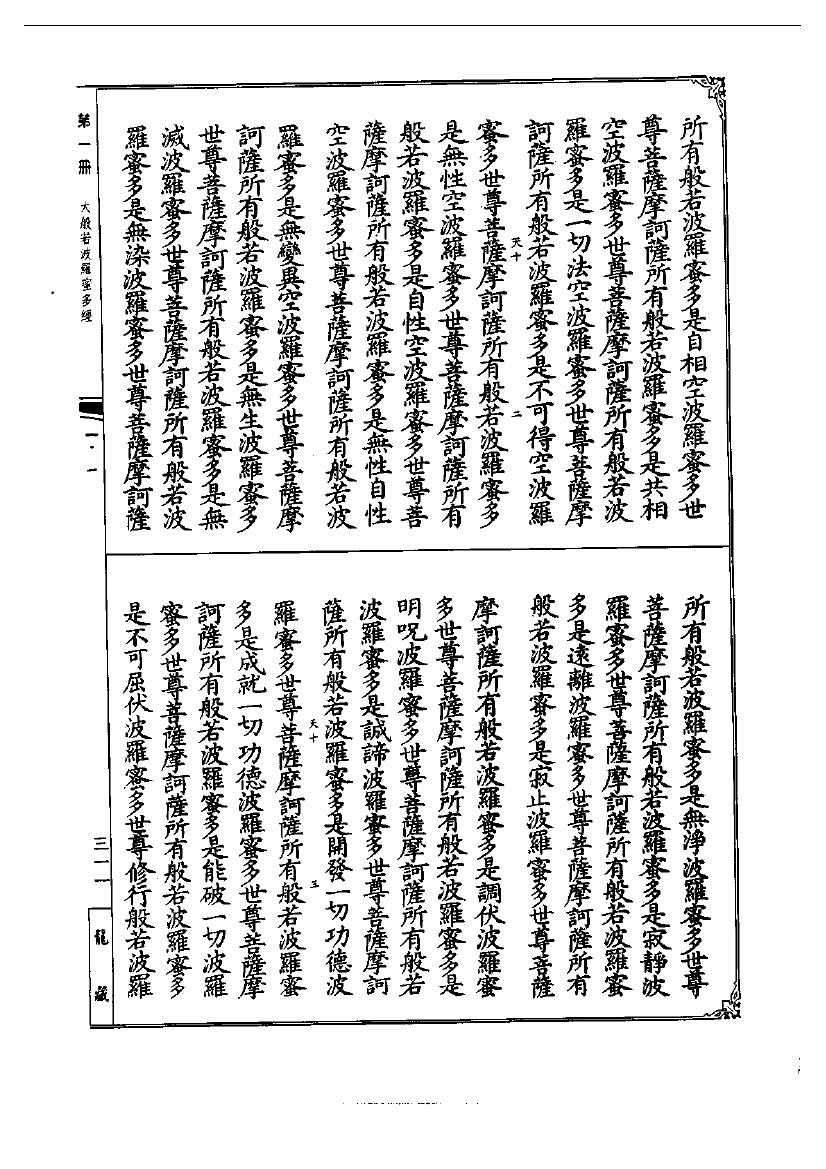 所有般若波羅蜜多是自相空波羅蜜多世
尊菩薩摩訶薩所有般若波羅蜜多是共相
空波羅蜜多世尊菩薩摩訶薩所有般若波
羅蜜多是一切法空波羅蜜多世尊菩薩摩
訶薩所有般若波羅蜜多是不可得空波羅
天十
二
蜜多世尊菩薩摩訶薩所有般若波羅蜜多
是無性空波羅蜜多世尊菩薩摩訶薩所有
般若波羅蜜多是自性空波羅蜜多世尊菩
薩摩訶薩所有般若波羅蜜多是無性自性
空波羅蜜多世尊菩薩摩訶薩所有般若波
羅蜜多是無變異空波羅蜜多世尊菩薩摩
訶薩所有般若波羅蜜多是無生波羅蜜多
世尊菩薩摩訶薩所有般若波羅蜜多是無
滅波羅蜜多世尊菩薩摩訶薩所有般若波
羅蜜多是無染波羅蜜多世尊菩薩摩訶薩
所有般若波羅蜜多是無淨波羅蜜多世尊
菩薩摩訶薩所有般若波羅蜜多是寂靜波
羅蜜多世尊菩薩摩訶薩所有般若波羅蜜
多是遠離波羅蜜多世尊菩薩摩訶薩所有
般若波羅蜜多是寂止波羅蜜多世尊菩薩
摩訶薩所有般若波羅蜜多是調伏波羅蜜
多世尊菩薩摩訶薩所有般若波羅蜜多是
明呪波羅蜜多世尊菩薩摩訶薩所有般若
波羅蜜多是誠諦波羅蜜多世尊菩薩摩訶
薩所有般若波羅蜜多是開發一切功德波
天十
三
羅蜜多世尊菩薩摩訶薩所有般若波羅蜜
多是成就一切功德波羅蜜多世尊菩薩摩
訶薩所有般若波羅蜜多是能破一切波羅
蜜多世尊菩薩摩訶薩所有般若波羅蜜多
是不可屈伏波羅蜜多世尊修行般若波羅
第一冊 大般若波羅蜜多經
一·一
三一一
龍藏